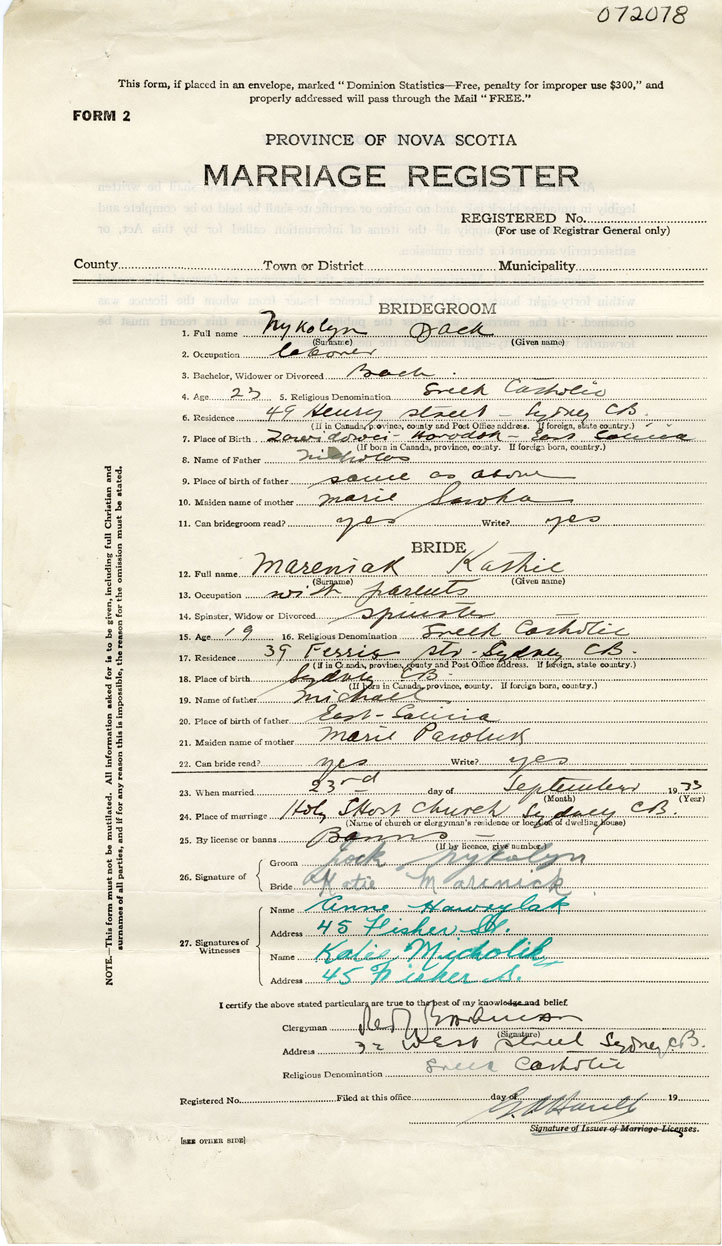 072078
This form, if placed in an envelope, marked "Dominion Statistics—Free, penalty for improper use $300," and
properly addressed will pass through the Mail "FREE."
FORM 2
PROVINCE OF NOVA SCOTIA
MARRIAGE REGISTER
REGISTERED No.
(For use of Registrar General only)
County Town or District Municipality
BRIDEGROOM
1. Full name Nykolyn Jack
(Surname) (Given name)
2. Occupation laborer
3. Bachelor, Widower or Divorced Bach.
4. Age 23 5. Religious Denomination Greek Catholic
6. Residence 49 Henry street - Sydney CB.
(If in Canada, province, county and Post Office address. If foreign, state country.)
7. Place of Birth Horodok - East
(If born in Canada, province, county. If foreign born, country.)
8. Name of Father Nicholas
9. Place of birth of father same as above
10. Maiden name of mother Marie
11. Can bridegroom read? yes Write? yes
BRIDE
12. Full name Mareniak Kathie
(Surname) (Given name)
13. Occupation with parents
14. Spinster, Widow or Divorced spinster
15. Age 19 16. Religious Denomination Greek Catholic
17. Residence 39 Ferris str. Sydney CB.
(If in Canada, province, county and Post Office address. If foreign, state country.)
18. Place of birth Sydney CB.
(If born in Canada, province, county. If foreign born, country.)
19. Name of father Michael
20. Place of birth of father East-
21. Maiden name of mother Marie Pawluk
22. Can bride read? yes Write? yes
23. When married 23rd day of September 1933
(Month) (Year)
24. Place of marriage Holy Ghost Church Sydney CB.
(Name of church or clergyman's residence or location of dwelling house)
25. By license or banns Banns -
(If by licence, give number)
26. Signature of
Groom Jack Nykolyn
Bride Katie Marenick
27. Signatures of
Witnesses
Name Anne Hawrylak
Address 45 Fisher St.
Name Katie Micholik
Address 45 Fisher S.
I certify the above stated particulars are true to the best of my knowledge and belief.
Clergyman
(Signature)
Address 32 West street Sydney CB.
Religious Denomination Greek Catholic
Registered No. Filed at this office day of 19
Signature of Issuer of Marriage Licenses.
[SEE OTHER SIDE]
NOTE.—This form must not be mutilated. All information asked for is to be given, including full Christian and
surnames of all parties, and if for any reason this is impossible, the reason for the omission must be stated.